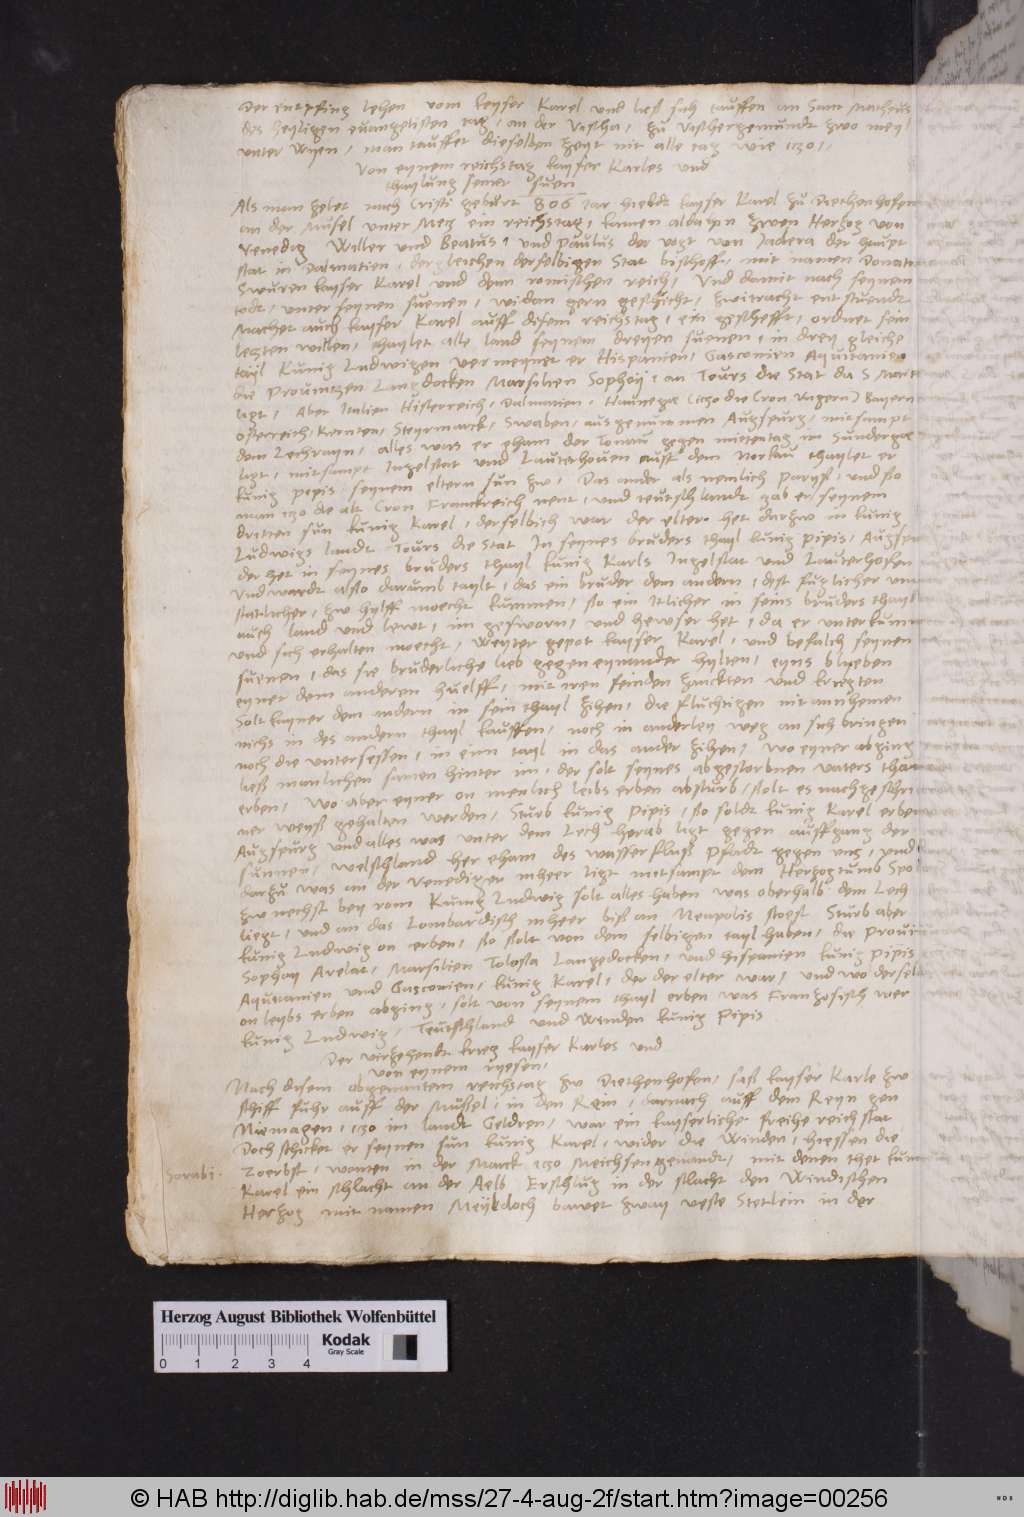 Der entpfing lehen vom keyser Karel und ließ sich tauffen an Sant Matheus
des heyligen euangelisten tag, an der Vischa, zu Vischergemundt zwo meyl
unter Wyen, man tauffet dieselben zeyt nit alle tag wie izo,
Von eynem reichstag kayser Karles und
thaylung seiner suen
Als man zelet nach Cristi geburt 806 iar hieldt kayser Karel zu Diethenhofen
an der Musel unter Mez ein reichstag, kamen aldahyn zwen Herzog von
Venedig Willer und Beatus, und Paulus der vogt von Jadera der haupt
stat in Dalmatien, dergleichen derselbigen Stat bischoff, mit namen Donatus
Swuren kayser Karel und dem romischen reich, Und damit nach seynem
todt, unter seynen suenen, weidan gern geschicht, zwitracht entstuendt
Machet auch kayser Karel auff disem reichstag, ein gescheft, ordnet sein
lezten willen, thaylet alle land seynem dreyen suenen, in drey gleiche
tayl Kunig Ludwigen vermeynet er Hispanien, Gasconien Aquitanien
die Prouintzen Langdocken Marsilien Sophoy, an Tours die Stat da S Mart
ligt, Aber Italien Histerreich, Dalmatien, Hannega (izo die Cron Vngern) Bayern
österreich, Kernten, Steyrmarck, Swaben, ausgenummen Augspurg, mitsampt
dem Lechrayn, alles was er eham der Tonau gegen mittentag im Sundergau
ligt, mitsampt Ingelstat und Lauterhouen auff dem Norkau thaylet er
kunig pepis seynem eltern sun zw, Das ander als nemlich Paryß, und so
man izo die alt Cron Franckreich nent, und teutschlandt gab er seynem
dritten sun kunig Karel, derselbich war der elter. het darzw in kunig
Ludwigs landt Tours die Stat In seynes bruders thayl kunig pipis, Augspurg
der het in seynes bruders thayl kunig Karls Ingelstat und Lauterhofen
Und wardt also darumb taylt, das ein bruder dem andern, dest fuglicher und
statlicher, zw hylff moecht kummen, so ein itlicher in seins bruders thayl
auch land und lewt, im geschworn, und hewser het, da er unterkummen
und sich erhalten moecht, Weyter gepot kayser Karel, und befalch seynen
suenen, das sie bruderliche lieb gegen eynander hylten, eyns blieben
eyner dem anderen huelff, mit iren feinden zanckten und kriegten
Solt kayner dem andern in sein thayl zihen, die fluchtigen nit annhemen
nichs in des andern thayl kauffen, noch in anderley weg an sich bringen
noch die untersessen, in eim tayl in das ander zihen, wo eyner abging
ließ manlichen samen hinter im, der solt seynes abgestorbnen vaters thayl
erben, Wo aber eyner on menlich leibs erben absturb, solt es nachgeschri
ner weyß gehalten werden, Sturb kunig Pipis, so soldt kunig Karel erben
Augspurg und alles was unter dem Lech herab ligt gegen auffgang der
sunnen, welschland her eham des wasserfluß Pfadt gegen uns, und
darzu was an der Venediger mheer ligt mitsampt dem Herzogtumb Spo
zw nechst bey rom Kunig Ludwig solt alles haben was oberhalb dem Lech
liegt, und an das Lombardisch mheer biß an Neapolis stoest Sturb aber
kunig Ludwig on erben, so solt von dem selbigen tayl haben, die Prouintz
Sophoy Arelat, Marsilien Tolosa Langedocken, und hispanien kunig Pipis
Aquitanien und Gasconien, kunig Karel, der der elter war, und wo dersel
on leybs erben abging, solt von seynem thayl erben was Franzosisch wer
kunig Ludwig, Teutschland und Winden kunig Pipis
Der virzehendt krieg kayser Karles und
von eynem ryesen,
Nach disem obgenantem reichstag zw Diethenhofen, saß kayser Karle zw
schiff fuhr auff der Mussel, in den Rein, darnach auff dem Reyn gen
Niemagen, izo im landt Geldren, war ein kayserliche freihe reich stat
Doch schicket er seynen sun kunig Karel, wider die Winden, hiessen die
Sorabi. Zoerbst, wonten in der Marck izo Meichsen genandt, mit denen thet kunig
Karel ein schlacht an der Aelb Erschlug in der slacht den Windischen
Herzog mit namen Meyldoch bawet zway veste Stetlein in der
Herzog August Bibliothek Wolfenbüttel
Kodak
Gray Scale
0 1 2 3 4
© HAB http://diglib.hab.de/mss/27-4-aug-2f/start.htm?image=00256